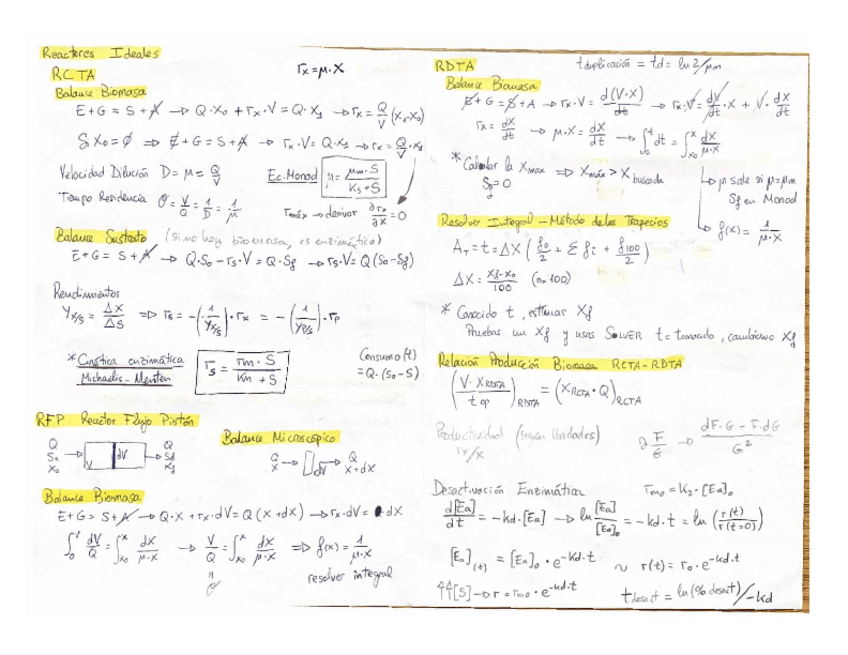 Reactores Ideales
RCTA
rx = μ·X
Balance Biomasa
E+G = S+A → Q·X0 + rx·V = Q·X1 → rx = Q/V (X1-X0)
Si X0=∅ ⇒ E+G = S+A → rx·V = Q·X1 → rx = Q/V·X1
Velocidad Dilución D = μ = Q/V
Ec. Monod μ = μm·S / Ks+S
Tiempo Residencia θ = V/Q = 1/D = 1/μ
rmáx → derivar ∂rx/∂X = 0
Balance Sustrato (si no hay biomasa, es enzimático)
E+G = S+A → Q·S0 - rs·V = Q·Sf → rs·V = Q(S0-Sf)
Rendimientos
Yx/s = ΔX/ΔS ⇒ rs = -(1/Yx/s)·rx = -(1/Yp/s)·rp
* Cinética enzimática
Michaelis-Menten
rs = rm·S / Km+S
Consumo(t)
= Q·(S0-S)
RFP Reactor Flujo Pistón
Q
S0
X0
V
dV
Q
Sf
Xf
Balance Microscópico
Q
X
dV
Q
X+dX
Balance Biomasa
E+G = S+A → Q·X + rx·dV = Q(X+dX) → rx·dV = dX
∫0^V dV/Q = ∫x0^x dX/μ·X → V/Q = ∫x0^x dX/μ·X ⇒ f(x) = 1/μ·X
"
θ
resolver integral
RDTA
t duplicación = td = ln2/μm
Balance Biomasa
E+G = S+A → rx·V = d(V·X)/dt → rx·V = dV/dt·X + V·dX/dt
rx = dX/dt → μ·X = dX/dt → ∫0^t dt = ∫x0^x dX/μ·X
* Calcular la Xmax ⇒ Xmáx > X buscada
Sf=0
→ μ sale si μ=μm
Sf en Monod
→ f(x) = 1/μ·X
Resolver Integral - Método de los Trapecios
AT = t = ΔX (f0/2 + Σfi + f100/2)
ΔX = Xf-X0/100 (n=100)
* Conocido t, estimar Xf
Pruebas un Xf y usas SOLVER t = tomado, cambiamo Xf
Relación Producción Biomasa RCTA-RDTA
(V·XRDTA / top)RDTA = (XRCTA·Q)RCTA
Productividad (según Unidades)
rx/x
∂ F/G → dF·G - F·dG / G²
Desactivación Enzimática
rmo = K2·[Ea]0
d[Ea]/dt = -kd·[Ea] → ln [Ea]/[Ea]0 = -kd·t = ln (r(t)/r(t=0))
[Ea](t) = [Ea]0·e^-kd·t ~ r(t) = r0·e^-kd·t
↑↑[S] → r = rmo·e^-kd·t
tdesact = ln(% desact)/-kd